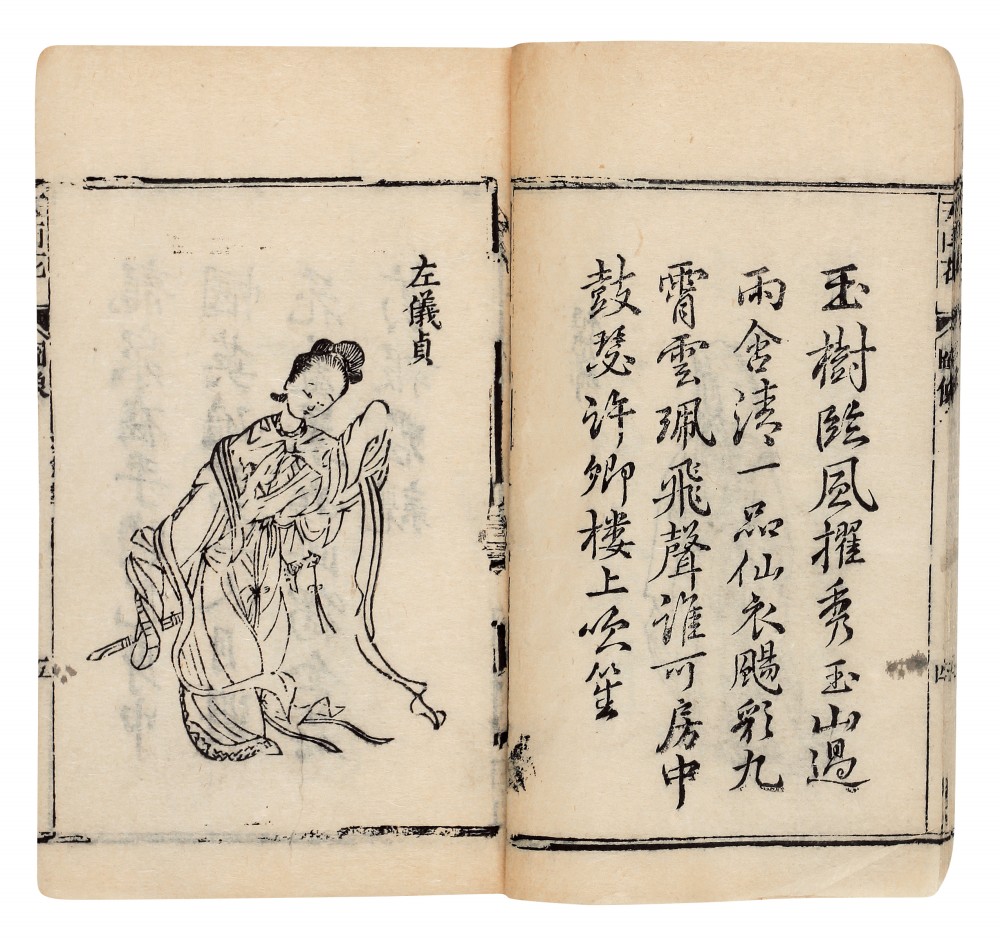 玉樹臨風擢秀玉山過
雨含清一品仙衣颺彩九
霄雲珮飛聲誰可房中
鼓瑟許卿樓上吹笙
左儀貞